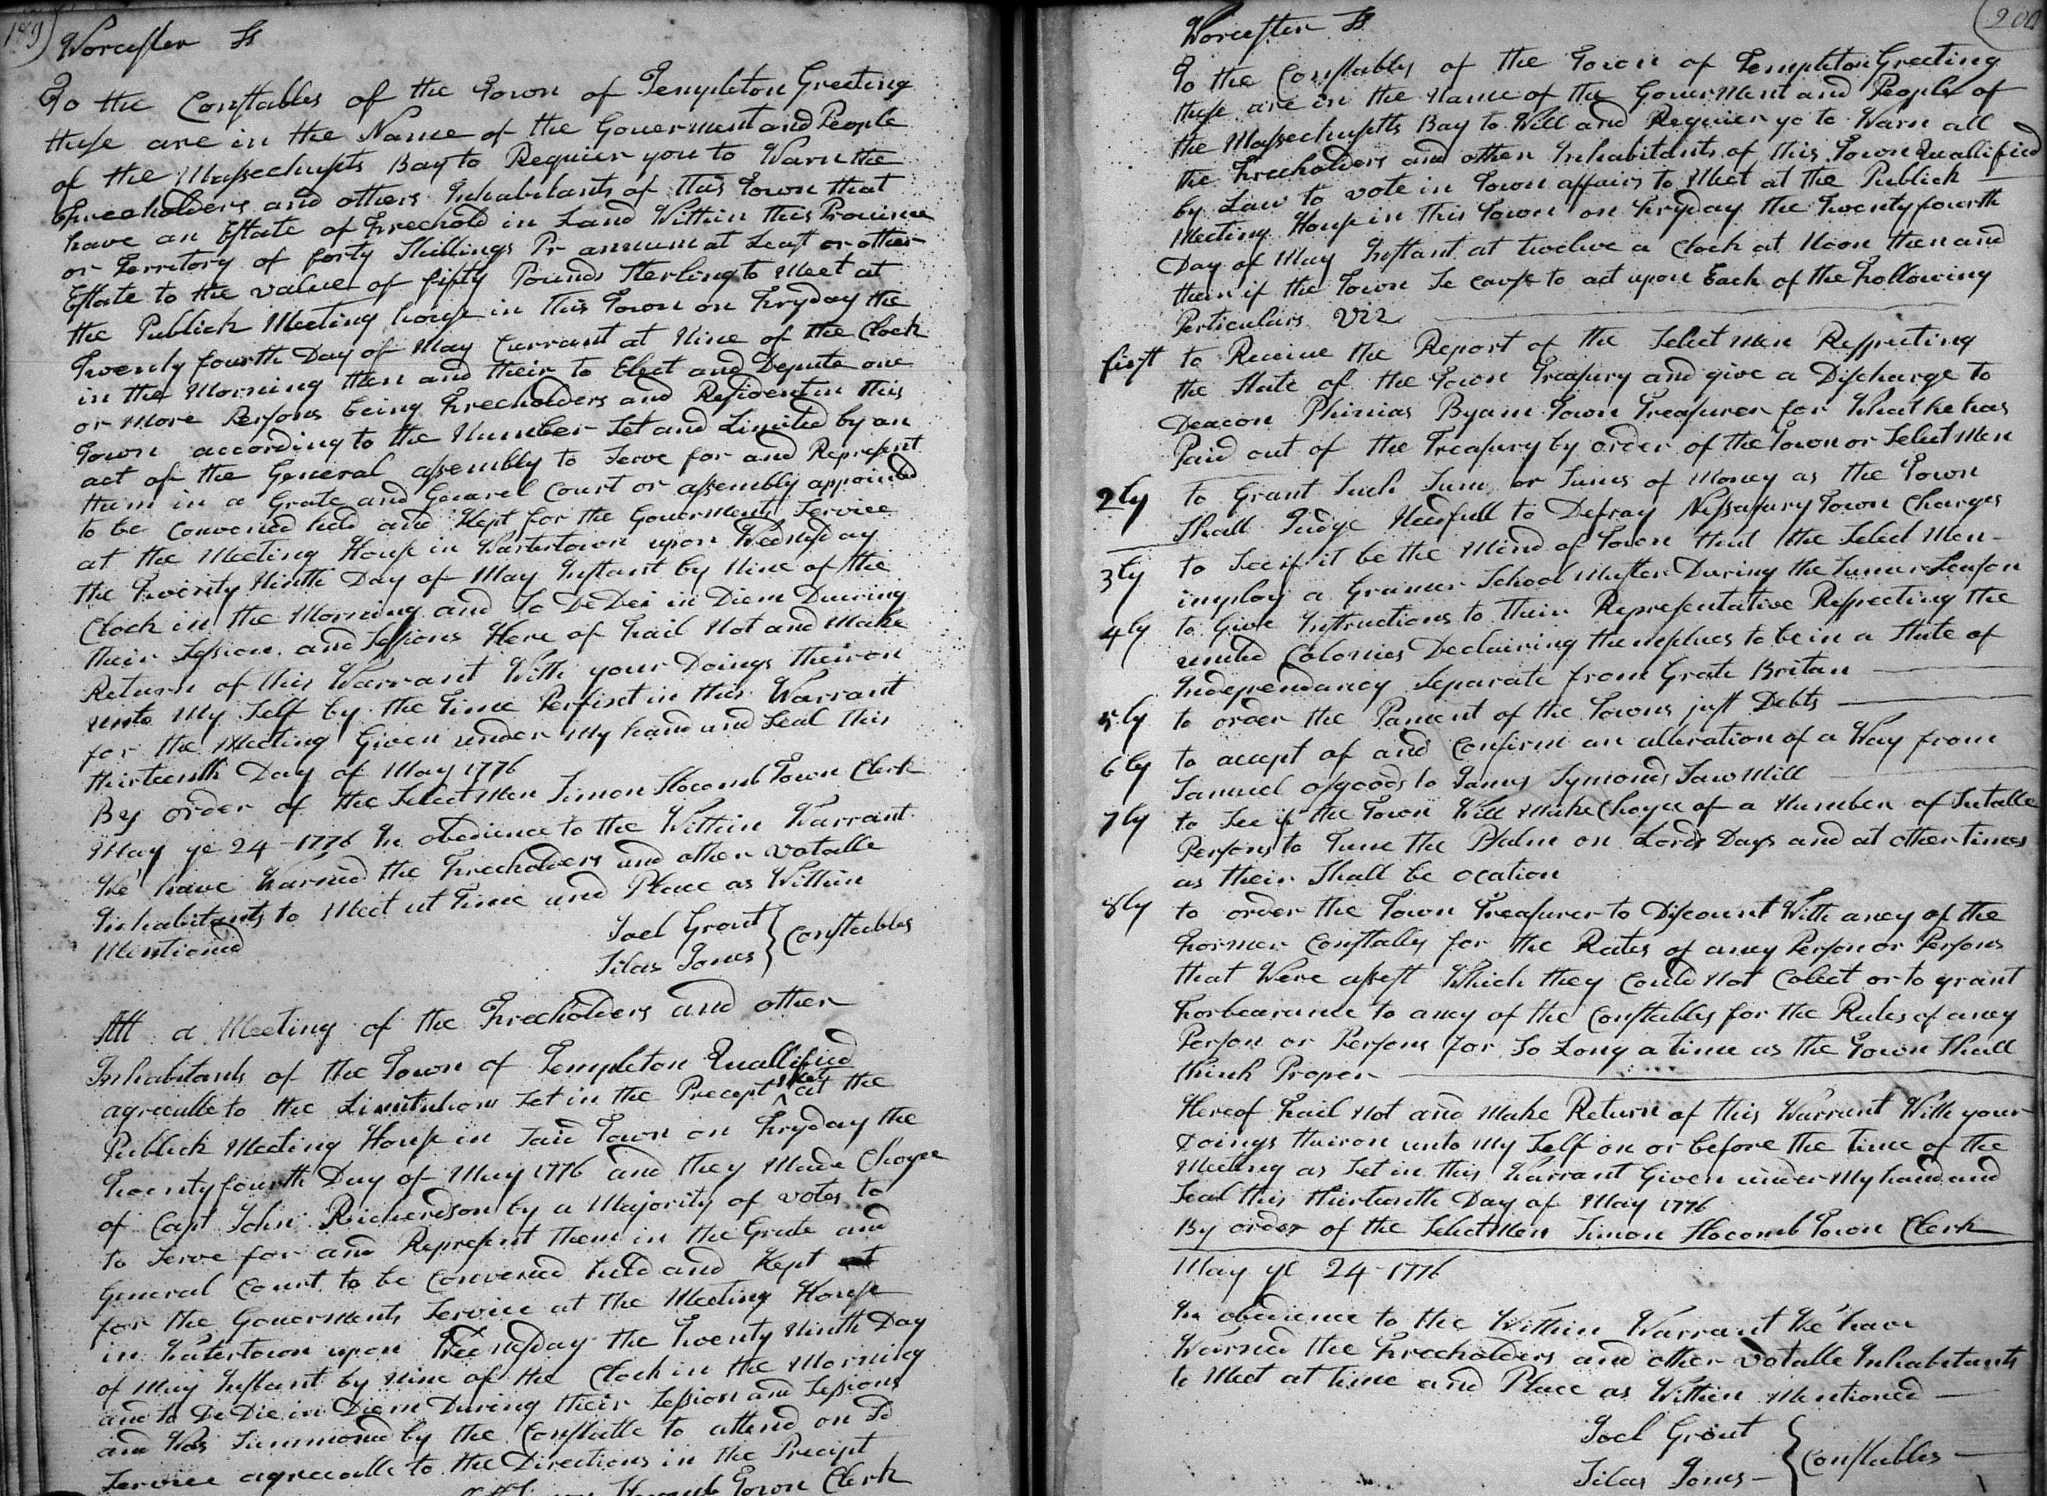 199
Worcester Ss
To the Constables of the Town of Templeton Greeting
these are in the Name of the Government and People
of the Massechusets Bay to Requier you to Warn the
Freeholders and others Inhabitants of this Town that
have an Estate of Freehold in Land Within this Province
or Territory of forty Shillings Pr annum at Least or other
Estate to the value of fifty Pounds Sterling to Meet at
the Publick Meeting house in this Town on Fryday the
Twenty fourth Day of May Currant at Nine of the Clock
in the Morning then and their to Elect and Depute one
or More Persons being Freeholders and Resident in this
Town according to the Number Set and Limited by an
act of the General assembly to Serve for and Represent
them in a Grate and General Court or assembly appointed
to be Convened held and Kept for the Goverments Service
at the Meeting House in Wartertown upon Wednesday
the Twenty Ninth Day of May Instant by Nine of the
Clock in the Morning and So De Dei in Diem Duering
their Session and Sessions Here of Fail Not and Make
Return of this Warrant With your Doings theiron
unto My Self by the Time Perfixt in this Warrant
for the Meeting Given under My hand and Seal this
thirteenth Day of May 1776
By order of the Select Men Simon Stocomb Town Clerk
May ye 24 - 1776 In obedience to the Within Warrant
We have Warned the Freeholders and other votable
Inhabitants to Meet at Time and Place as Within
Mentioned
Joel Grout
Silas Jones } Constables
Att a Meeting of the Freeholders and other
Inhabitants of the Town of Templeton Quallified
agreeable to the Limitations Set in the Precept Met at the
Publick Meeting House in Said Town on Fryday the
Twenty fourth Day of May 1776 and they Made Choyce
of Capt John Richerdson by a Majority of votes to
to Serve for and Represent them in the Grate and
General Court to be Convened held and Kept
for the Goverments Service at the Meeting House
in Watertown upon Wednesday the Twenty Ninth Day
of May Instant by Nine of the Clock in the Morning
and So De Die in Diem During their Session and Sessions
and Was Summoned by the Constable to attend on Sd
Service agreeable to the Directions in the Precept
Town Clerk
200
Worcester Ss
To the Constables of the Town of Templeton Greeting
these are in the Name of the Government and People of
the Massechusetts Bay to Will and Requier ye to Warn all
the Freeholders and other Inhabitants of this Town Quallified
by Law to vote in Town affairs to Meet at the Publick
Meeting House in this Town on Fryday the Twenty fourth
Day of May Instant at twelve a Clock at Noon then and
their if the Town Se cause to act upon Each of the Following
Perticulars Viz
first to Receive the Report of the Select Men Respecting
the State of the Town Treasury and give a Discharge to
Deacon Phinias Byam Town Treasurer for What he has
Paid out of the Treasury by order of the Town or Select Men
2ly to Grant Such Sum or Sums of Money as the Town
Shall Judge Needfull to Defray Nessasury Town Charges
3ly to See if it be the Mind of Town that the Select Men
imploy a Gramer School Master During the Sumer Season
4ly to Give Instructions to their Representative Respecting the
united Colonies Declairing themselves to be in a State of
Independancy Separate from Grate Britan
5ly to order the Pament of the Towns just Debts
6ly to accept of and Confirm an alteration of a Way from
Samuel osgoods to James Symonds Saw Mill
7ly to See if the Town Will Make Choyce of a Number of Sutable
Persons to Tune the Psalm on Lords Days and at other times
as their Shall be ocation
8ly to order the Town Treasurer to Discount With aney of the
Former Constables for the Rates of aney Person or Persons
that Were assest Which they Could Not Colect or to grant
Forbearance to aney of the Constables for the Rates of aney
Person or Persons for So Long a time as the Town Shall
think Proper
Hereof Fail Not and Make Return of this Warrant With your
Doings theiron unto My Self on or before the Time of the
Meeting as Set in this Warrant Given under My hand and
Seal this thirteenth Day of May 1776
By order of the Select Men Simon Stocomb Town Clerk
May ye 24 - 1776
In obedience to the Within Warrant We have
Warned the Freeholders and other Votable Inhabitants
to Meet at time and Place as Within Mentioned
Joel Grout
Silas Jones } Constables